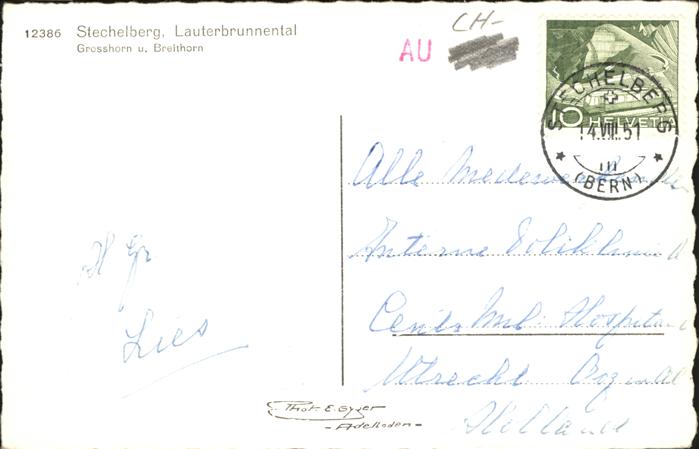 12386 Stechelberg, Lauterbrunnental
Grosshorn u. Breithorn
CH-
AU
10 HELVETIA
STECHELBERG
14.VIII.51
(BERN)
Alle
Interne Polikliniek
Centr Mil. Hospitaal
Utrecht
Holland
H Gr
Lies
Phot. E. Gyger
- Adelboden -